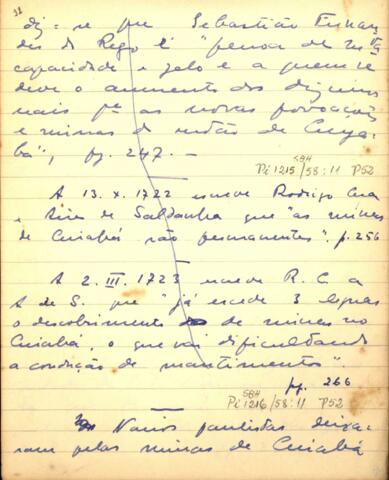 11
diz-se que Sebastião Fernan-
des do Rego é "pessoa de mta
capacidade e zelo e a quem se
deve o aumento dos dizimos
mais pª as novas povoações
e minas do sertão de Cuya-
bá", pg. 247. —
SBH
Pi 1215/58:11 P52
A 13.X.1722 escreve Rodrigo Cesar
de Saldanha que "as minas
de Cuiabá são permanentes". p. 256
A 2.III.1723 escreve R. C. a
A de S. que "já excede 3 leguas
o descobrimento de minas no
Cuiabá, o que vai dificultando
a condição de mantimentos"
pg. 266
SBH
Pi 1216/58:11 P52
Varios paulistas deixa-
ram pelas minas de Cuiabá